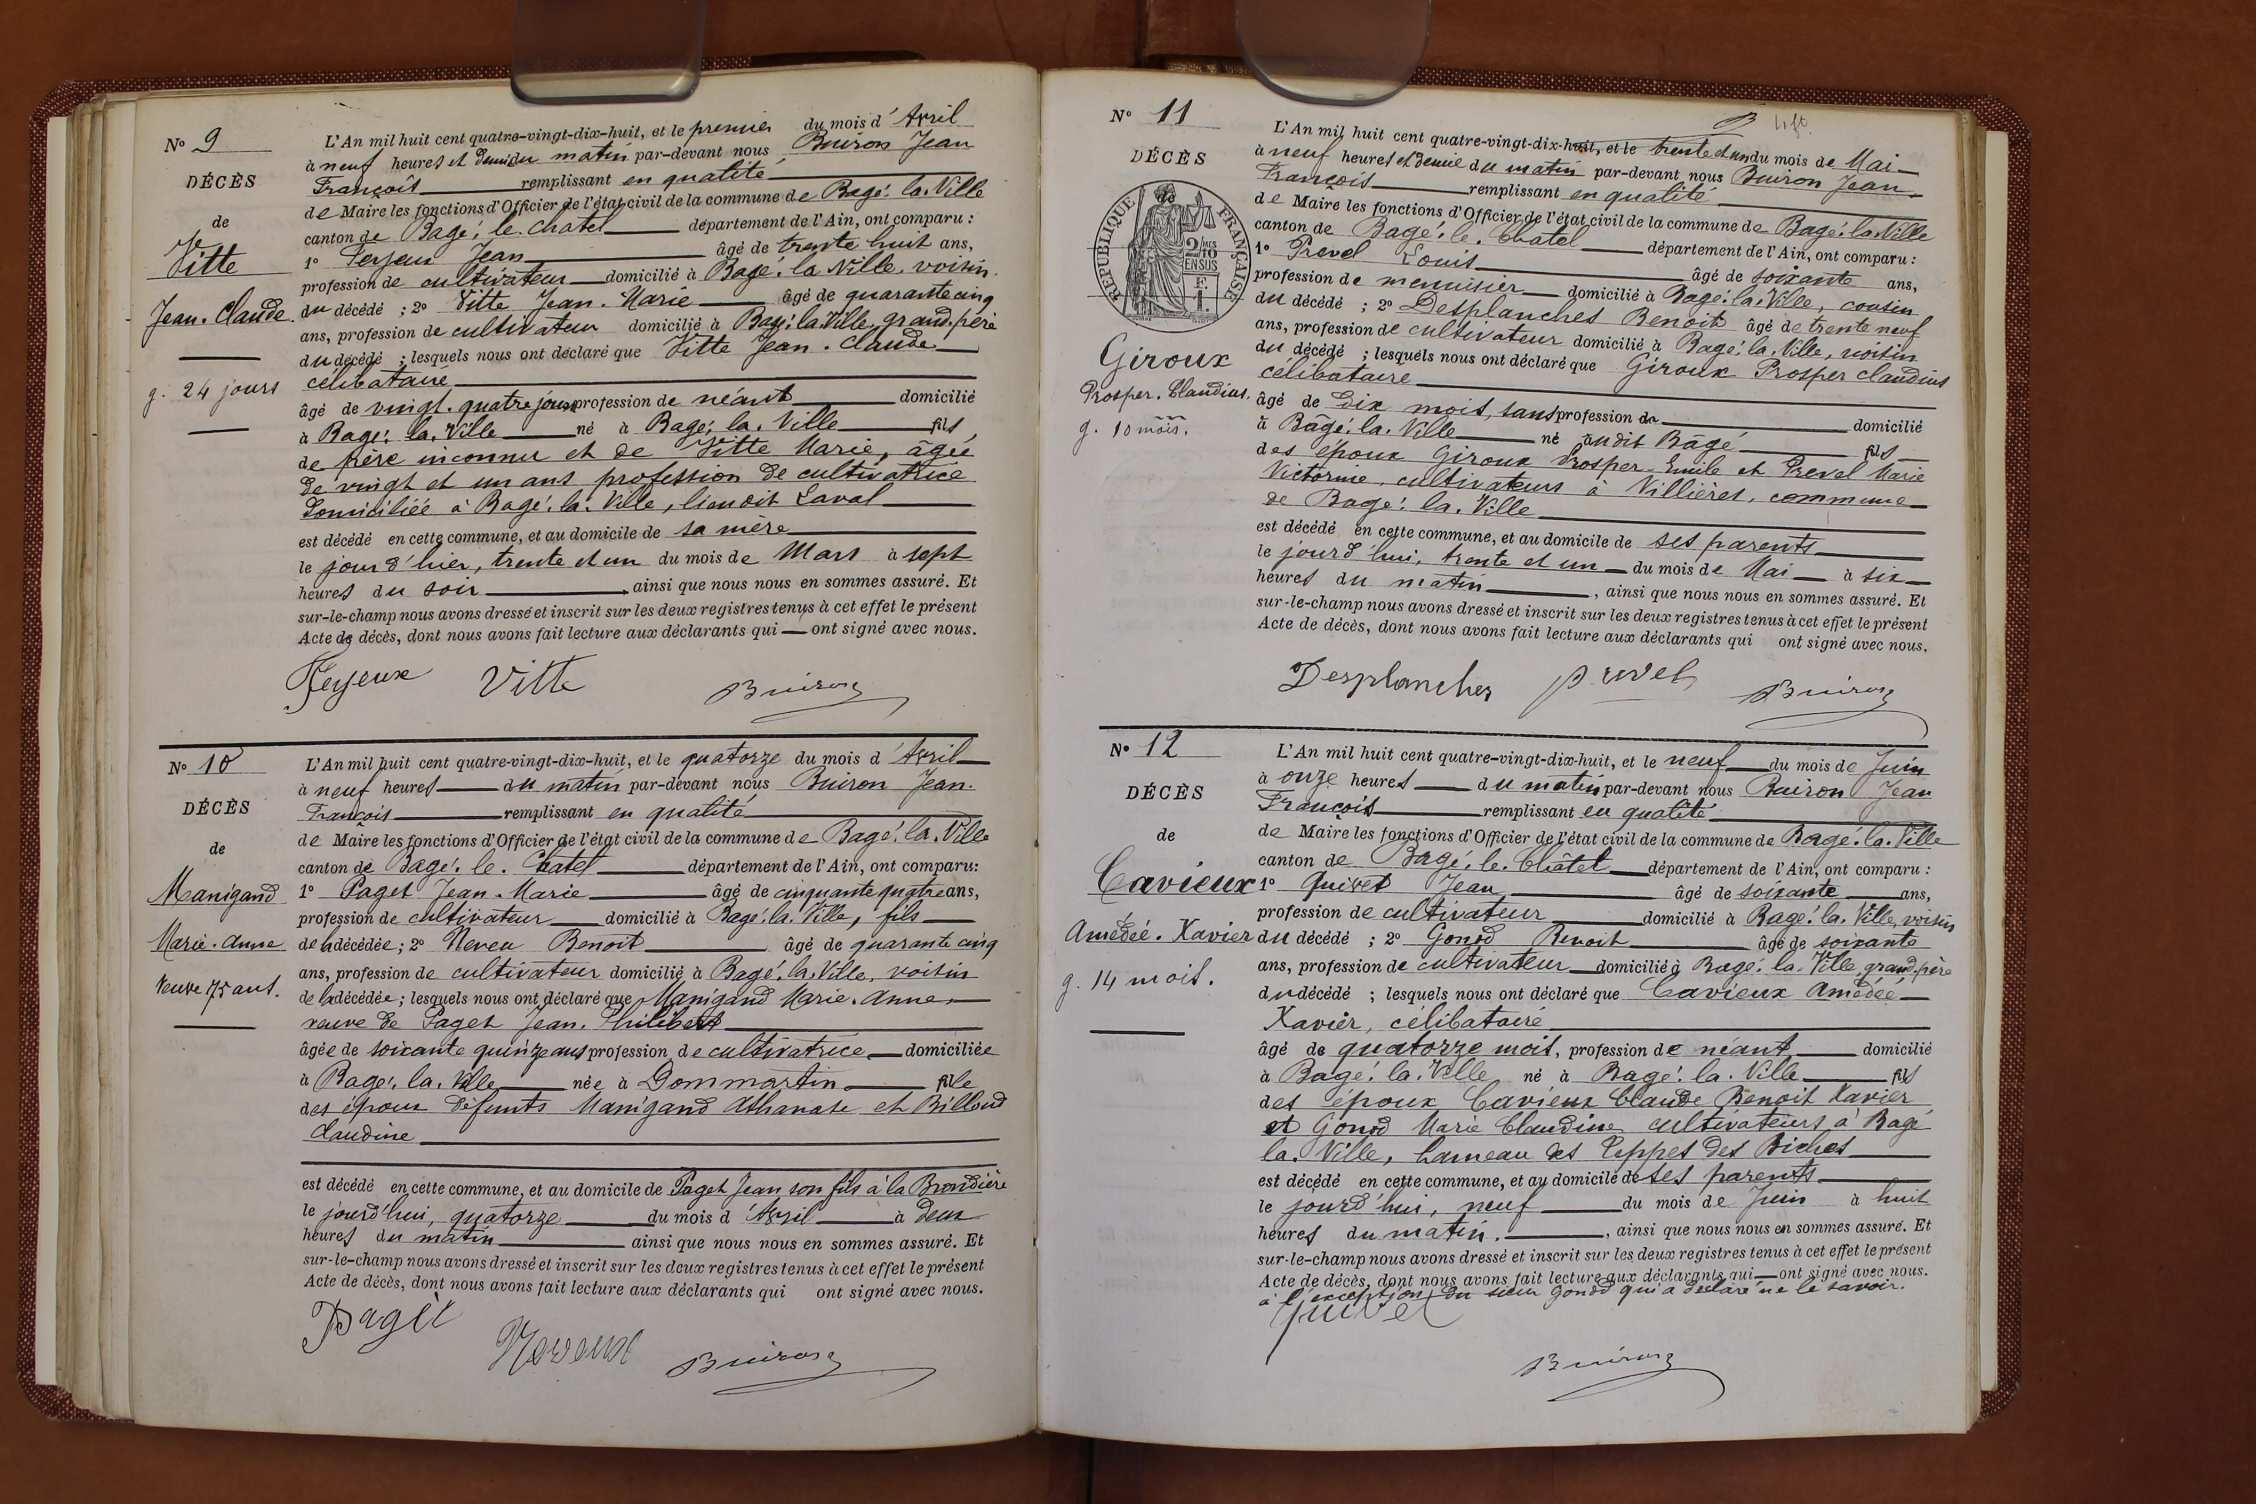 N° 9
DÉCÈS
de
Vitte
Jean-Claude.
g. 24 jours
L'An mil huit cent quatre-vingt-dix-huit, et le premier du mois d'Avril
à neuf heures et demi du matin par-devant nous Buiron Jean
François remplissant en qualité
de Maire les fonctions d'Officier de l'état civil de la commune de Bagé-la-Ville
canton de Bagé-le-Chatel département de l'Ain, ont comparu :
1° Feyeux Jean âgé de trente huit ans,
profession de cultivateur domicilié à Bagé-la-Ville, voisin
du décédé ; 2° Vitte Jean-Marie âgé de quarante cinq
ans, profession de cultivateur domicilié à Bagé-la-Ville, grand-père
du décédé ; lesquels nous ont déclaré que Vitte Jean-Claude
célibataire
âgé de vingt-quatre jours profession de néant domicilié
à Bagé-la-Ville né à Bagé-la-Ville fils
de père inconnu et de Vitte Marie, âgée
de vingt et un ans profession de cultivatrice
domiciliée à Bagé-la-Ville, lieu dit Laval
est décédé en cette commune, et au domicile de sa mère
le jour d'hier, trente et un du mois de Mars à sept
heures du soir, ainsi que nous nous en sommes assuré. Et
sur-le-champ nous avons dressé et inscrit sur les deux registres tenus à cet effet le présent
Acte de décès, dont nous avons fait lecture aux déclarants qui ont signé avec nous.
Feyeux Vitte Buiron
N° 10
DÉCÈS
de
Manigand
Marie-Anne
veuve 75 ans.
L'An mil huit cent quatre-vingt-dix-huit, et le quatorze du mois d'Avril
à neuf heures du matin par-devant nous Buiron Jean-
François remplissant en qualité
de Maire les fonctions d'Officier de l'état civil de la commune de Bagé-la-Ville
canton de Bagé-le-Chatel département de l'Ain, ont comparu:
1° Paget Jean-Marie âgé de cinquante quatre ans,
profession de cultivateur domicilié à Bagé-la-Ville, fils
de la décédée ; 2° Neveu Benoit âgé de quarante cinq
ans, profession de cultivateur domicilié à Bagé-la-Ville, voisin
de la décédée ; lesquels nous ont déclaré que Manigand Marie-Anne
veuve de Paget Jean-Philibert
âgée de soixante quinze ans profession de cultivatrice domiciliée
à Bagé-la-Ville née à Dommartin fille
des époux défunts Manigand Athanase et Billoud
Claudine
est décédé en cette commune, et au domicile de Paget Jean son fils à la Brondière
le jourd'hui, quatorze du mois d'Avril à deux
heures du matin ainsi que nous nous en sommes assuré. Et
sur-le-champ nous avons dressé et inscrit sur les deux registres tenus à cet effet le présent
Acte de décès, dont nous avons fait lecture aux déclarants qui ont signé avec nous.
Paget Neveux Buiron
N° 11
DÉCÈS
de
RÉPUBLIQUE FRANÇAISE
2/10 EN SUS
Giroux
Prosper-Claudius.
g. 10 mois.
L'An mil huit cent quatre-vingt-dix-huit, et le trente et un du mois de Mai
à neuf heures et demie du matin par-devant nous Buiron Jean-
François remplissant en qualité
de Maire les fonctions d'Officier de l'état civil de la commune de Bagé-la-Ville
canton de Bagé-le-Châtel département de l'Ain, ont comparu :
1° Prevel Louis âgé de soixante ans,
profession de menuisier domicilié à Bagé-la-Ville, cousin
du décédé ; 2° Desplanches Benoit âgé de trente neuf
ans, profession de cultivateur domicilié à Bagé-la-Ville, voisin
du décédé ; lesquels nous ont déclaré que Giroux Prosper Claudius
célibataire
âgé de dix mois, sans profession de domicilié
à Bâgé-la-Ville né audit Bâgé fils
des époux Giroux Prosper-Emile et Prevel Marie
Victorine, cultivateurs à Villières, commune
de Bagé-la-Ville
est décédé en cette commune, et au domicile de ses parents
le jourd'hui, trente et un du mois de Mai à six
heures du matin, ainsi que nous nous en sommes assuré. Et
sur-le-champ nous avons dressé et inscrit sur les deux registres tenus à cet effet le présent
Acte de décès, dont nous avons fait lecture aux déclarants qui ont signé avec nous.
Desplanches prevel Buiron
N° 12
DÉCÈS
de
Cavieux
Amédée-Xavier
g. 14 mois.
L'An mil huit cent quatre-vingt-dix-huit, et le neuf du mois de Juin
à onze heures du matin par-devant nous Buiron Jean
François remplissant en qualité
de Maire les fonctions d'Officier de l'état civil de la commune de Bagé-la-Ville
canton de Bagé-le-Châtel département de l'Ain, ont comparu :
1° Quivet Jean âgé de soixante ans,
profession de cultivateur domicilié à Bagé-la-Ville, voisin
du décédé ; 2° Gonod Benoit âgé de soixante
ans, profession de cultivateur domicilié à Bagé-la-Ville, grand-père
du décédé ; lesquels nous ont déclaré que Cavieux Amédée
Xavier, célibataire
âgé de quatorze mois, profession de néant domicilié
à Bagé-la-Ville né à Bagé-la-Ville fils
des époux Cavieux Claude Benoit Xavier
et Gonod Marie Claudine cultivateurs à Bagé
la-Ville, hameau des Teppes des Biches
est décédé en cette commune, et au domicile de ses parents
le jourd'hui, neuf du mois de Juin à huit
heures du matin, ainsi que nous nous en sommes assuré. Et
sur-le-champ nous avons dressé et inscrit sur les deux registres tenus à cet effet le présent
Acte de décès, dont nous avons fait lecture aux déclarants qui ont signé avec nous.
à l'exception du sieur Gonod qui a déclaré ne le savoir.
Quivet
Buiron